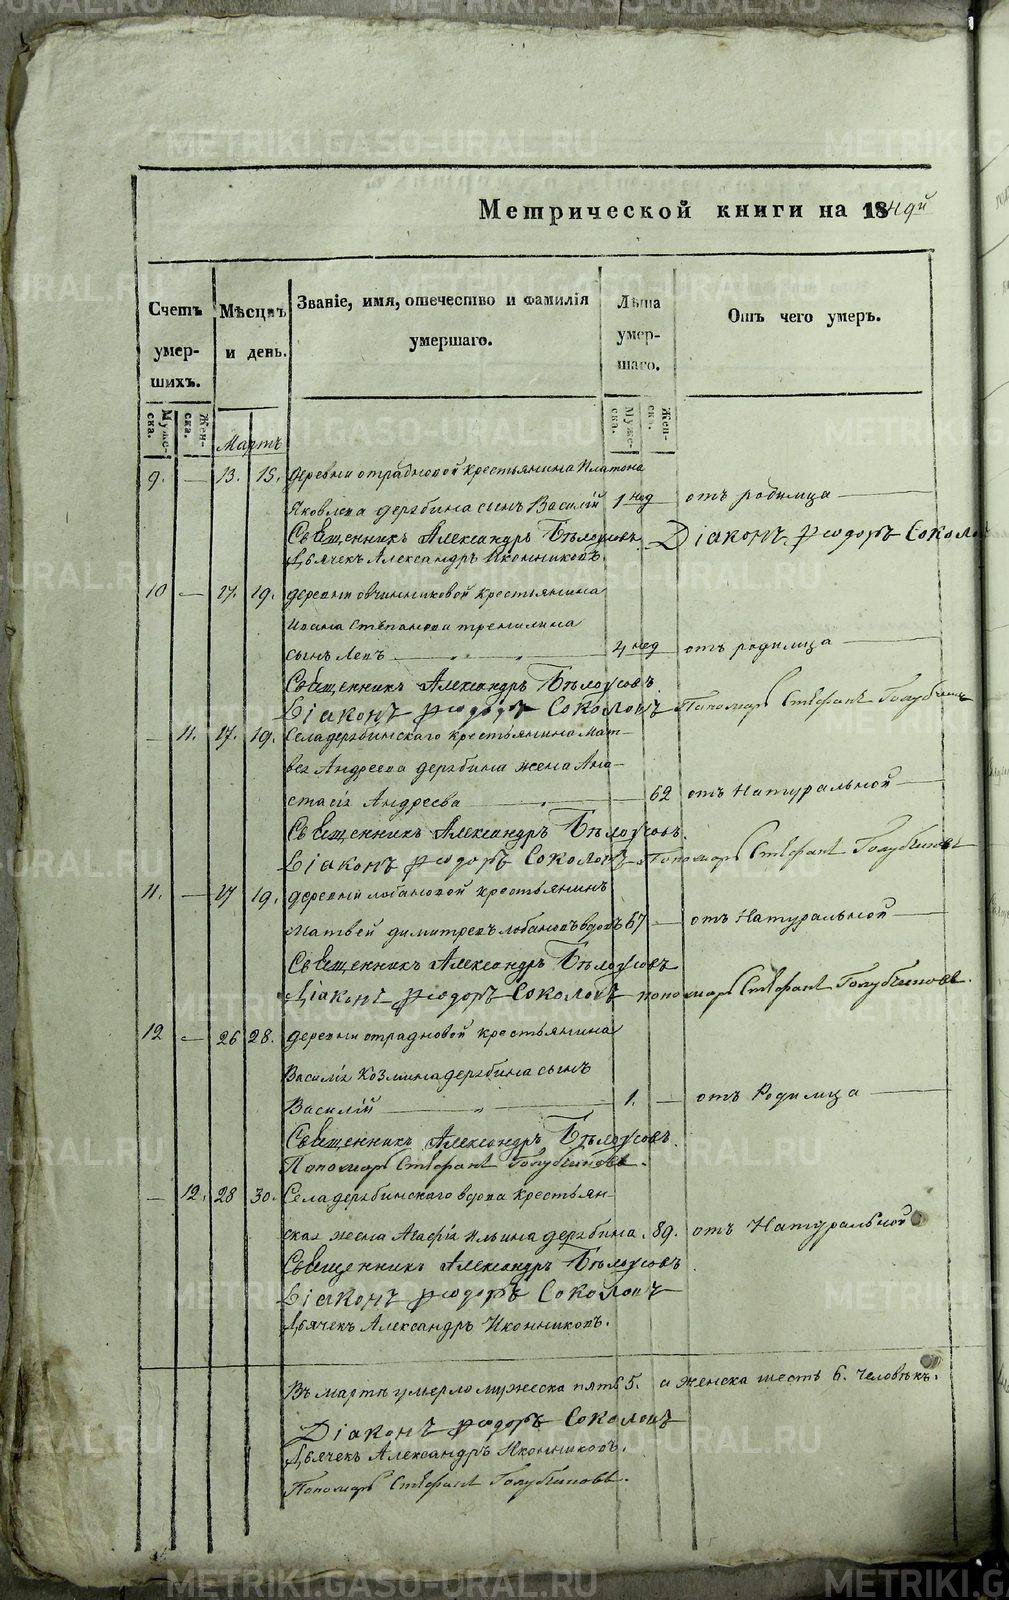 METRIKI.GASO-URAL.RU
Метрической книги на 18
Счетъ умер-шихъ.
Мужс-ска.
Жен-ска.
Мѣсяцъ и день.
Званіе, имя, отчество и фамилія умершаго.
Лѣта умер-шаго.
Мужс-ска.
Жен-ска.
Отъ чего умеръ.
Мартъ
9. — 13. 15. Деревни отрадновой крестьянина Платона
Яковлева дерябина сынъ Василій 1 нед отъ родимца
Священникъ Александръ Бѣлоусовъ. Діаконъ Ѳеодоръ Соколов
Дьячекъ Александръ Иконниковъ.
10 — 17. 19. деревни овчинниковой крестьянина
Иоана Степанова
сынъ Левъ 4 нед отъ родимца
Священникъ Александръ Бѣлоусовъ
Діаконъ Ѳеодоръ Соколовъ Пономарь Стефанъ
— 11. 17. 19. Села дерябинскаго крестьянина Мат-
вея Андреева дерябина жена Ана-
стасія Андреева 62 отъ Натуральной
Священникъ Александръ Бѣлоусовъ.
Діаконъ Ѳеодоръ Соколовъ Пономарь Стефанъ
11. — 17 19. деревни лобановой крестьянинъ
Матвей димитревъ лобановъ вдовъ 67 — отъ Натуральной
Священникъ Александръ Бѣлоусовъ
Діаконъ Ѳеодоръ Соколовъ пономарь Стефанъ
12 — 26 28. деревни отрадновой крестьянина
Василія Козмина дерябина сынъ
Василій 1. — отъ Родимца
Священникъ Александръ Бѣлоусовъ.
Пономарь Стефанъ
— 12. 28 30. Села дерябинскаго вдова крестьян-
ская жена Агафія Ильина дерябина. 89. отъ Натуральной
Священникъ Александръ Бѣлоусовъ.
Діаконъ Ѳеодоръ Соколовъ
Дьячекъ Александръ Иконниковъ.
Въ мартѣ умерло мужеска пять 5. а женска шесть 6. человѣкъ.
Діаконъ Ѳеодоръ Соколовъ
Дьячекъ Александръ Иконниковъ.
Пономарь Стефанъ